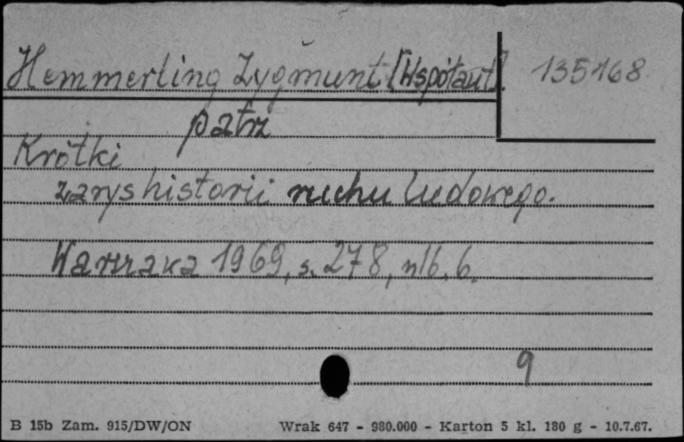 Hemmerling Zygmunt [Współaut]. 135168
patrz
Krótki
zarys historii ruchu ludowego.
Warszawa 1969, s. 278, nlb. 6.
9
B 15b Zam. 915/DW/ON Wrak 647 - 980.000 - Karton 5 kl. 180 g - 10.7.67.